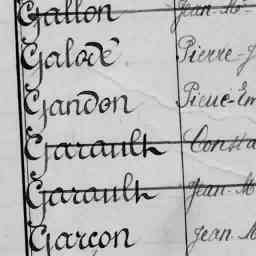 Gallon Jean-M
Galodé Pierre-J
Gandon Pierre-Em
Garault Consta
Garault Jean-M
Garçon Jean-M